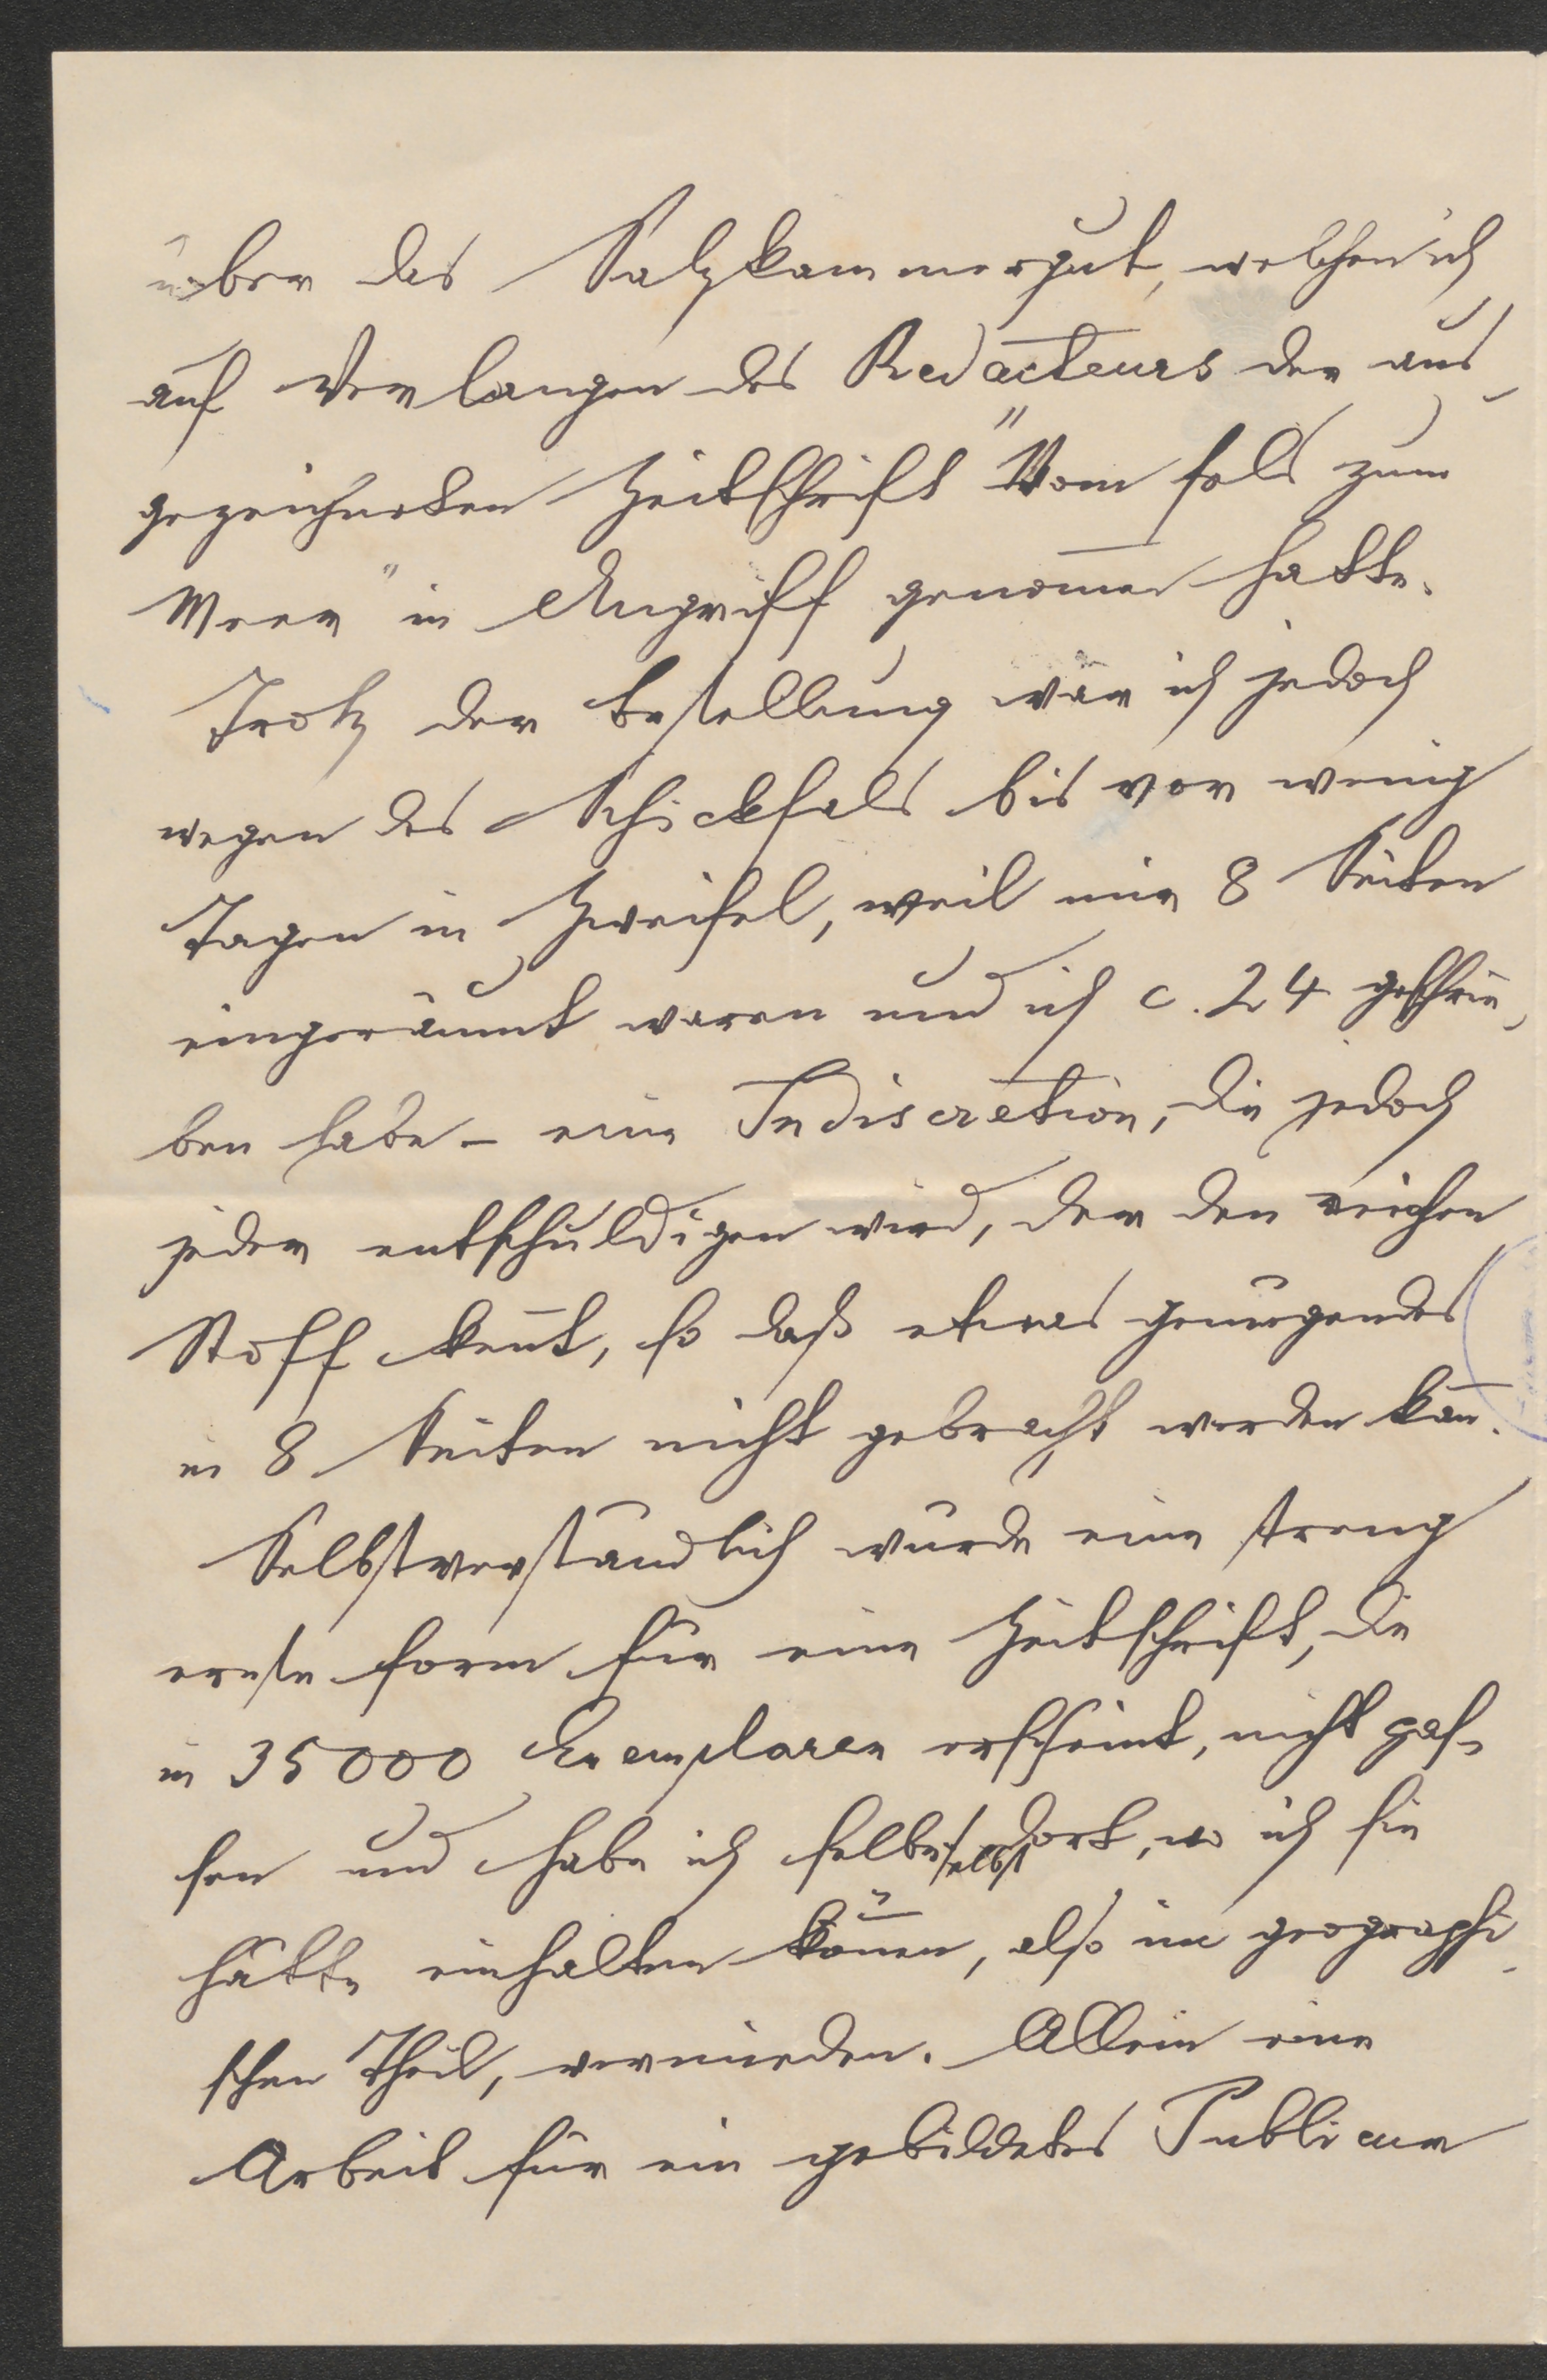 über das Salzkammergut, welchen ich
auf Verlangen des Redacteurs der aus-
gezeichneten Zeitschrift "Vom Fels zum
Meer" in Angriff genom̅en hatte.
Trotz der Bestellung war ich jedoch
wegen des Schicksals bis vor wenig
Tagen in Zweifel, weil mir 8 Seiten
eingeräumt waren und ich c. 24 geschrie-
ben habe – eine Indiscretion, die jedoch
jeder entschuldigen wird, der den reichen
Stoff ken̅t, so daß etwas genügendes
in 8 Seiten nicht gebracht werden kan̅.
Selbstverständlich würde eine streng
ernste Form für eine Zeitschrift, die
in 35000 Exemplaren erscheint, nicht pas-
sen und habe ich selbe selbst dort, wo ich sie
hätte einhalten kön̅en, also im geographi-
schen Theil, vermieden. Allein eine
Arbeit für ein gebildetes Publicum